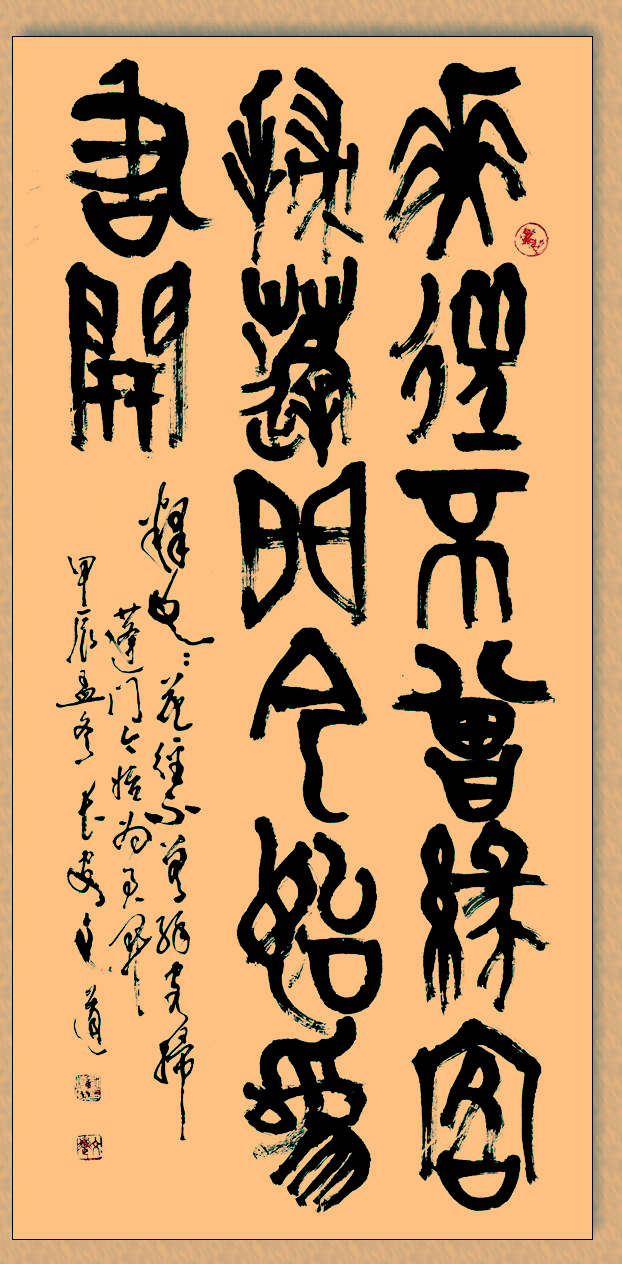 花徑不曾緣客
掃蓬門今始為
君開
釋文：花徑不曾緣客掃
蓬門今始為君開
甲辰孟冬長安道